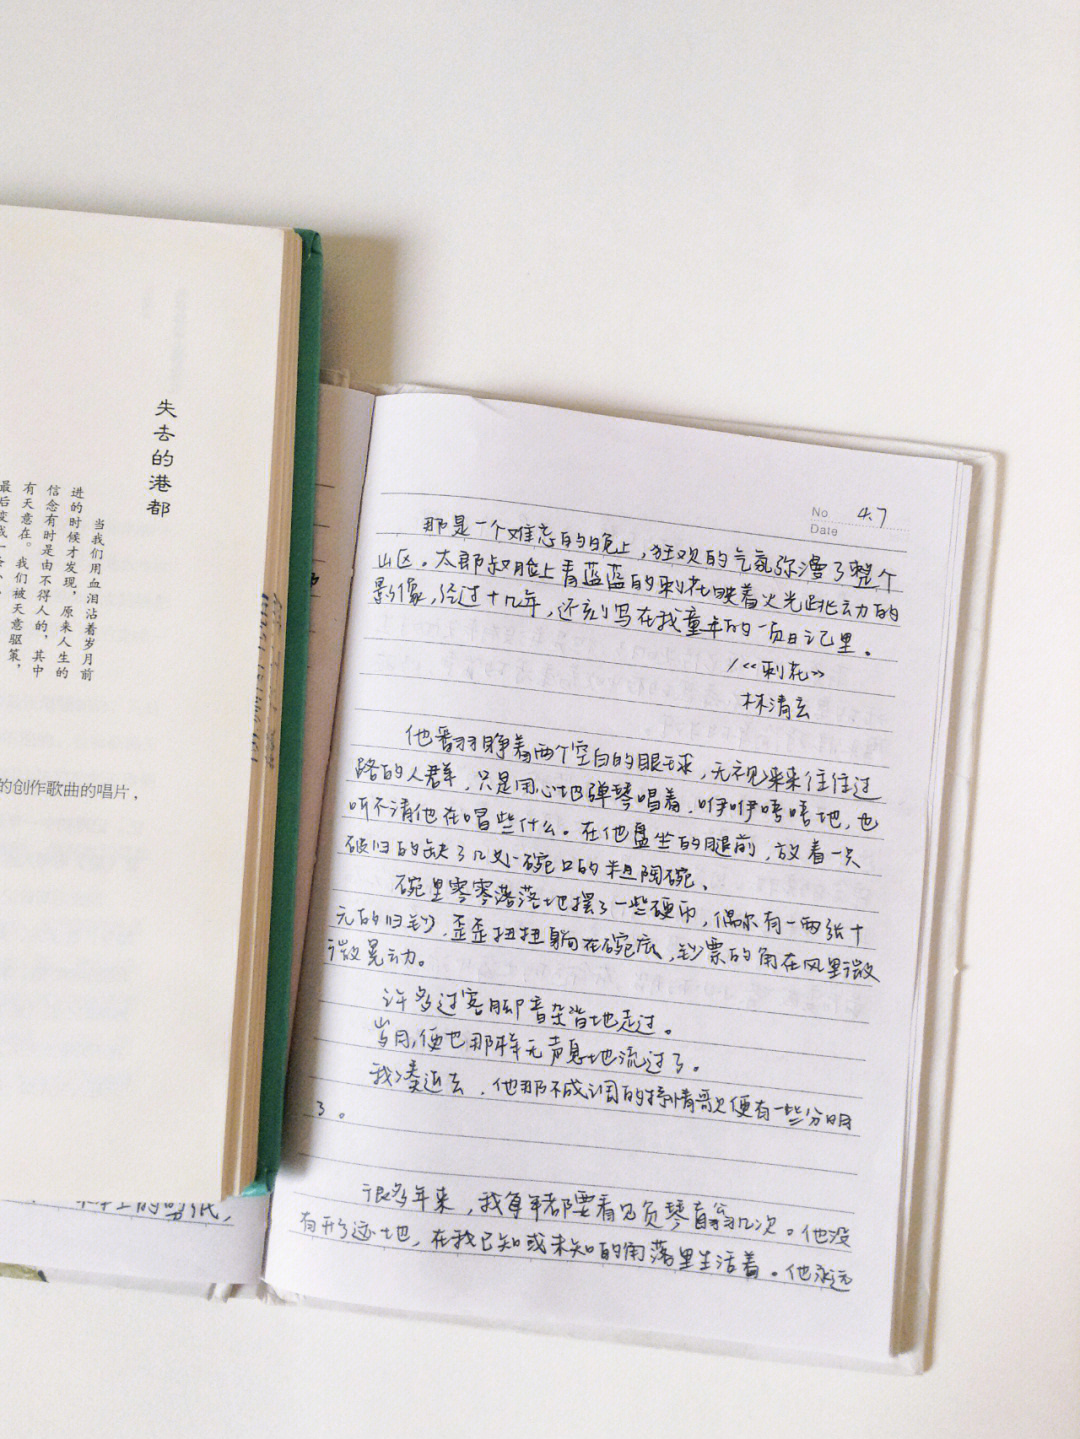 失去的港都
当我们用血泪沾着岁月前
进的时候才发现，原来人生的
信念有时是由不得人的，其中
有天意在。我们被天意驱策，
的创作歌曲的唱片，
No 4.7
Date
那是一个难忘的晚上，狂欢的气氛弥漫了整个
山区。太郎叔脸上青蓝蓝的刺花映着火光跳动的
影像，经过十几年，还刻写在我童年的一页日记里。
/《刺花》
林清玄
他翻睁着两个空白的眼球，无视来来往往过
路的人群，只是用心地弹琴唱着，咿咿唔唔地，也
听不清他在唱些什么。在他盘坐的腿前，放着一只
破旧的缺了几处碗口的粗陶碗。
碗里零零落落地摆了一些硬币，偶尔有一两张十
元的旧钞，歪歪扭扭躺在碗底，钞票的角在风里微
微晃动。
许多过客脚音杂沓地走过。
岁月，便也那样无声息地流过了。
我凑近去，他那不成调的抒情歌便有一些分明
了。
很多年来，我每年都要看见负琴盲翁几次。他没
有形迹地，在我已知或未知的角落里生活着。他永远